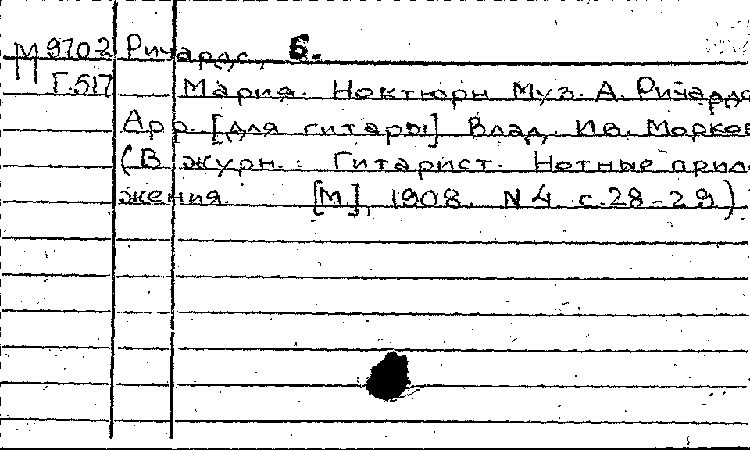 М 9702 Ричардс, Б.
Г.517 Мария. Ноктюрн Муз. А. Ричардс
Арр. [для гитары] Влад. Ив. Морков
(В журн.: Гитарист. Нотные прило-
жения [М], 1908. N 4 с.28-29)